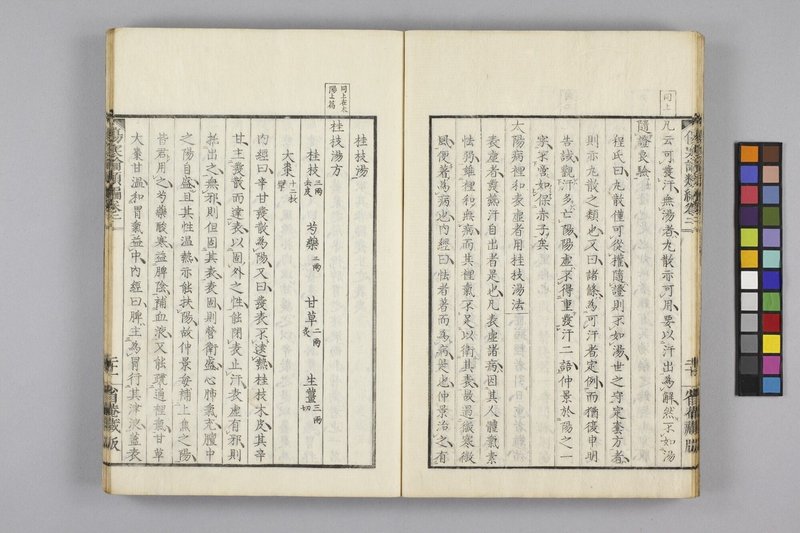 同上
凡云可發汗無湯者丸散亦可用要以汗出為解然不如湯
隨證良驗
程氏曰丸散僅可從權隨證則不如湯世之守定套方者
則亦丸散之類也又曰諸條為可汗者定例而猶復申明
告誡觀汗多亡陽陽虛不得重發汗二語仲景於陽之一
字不啻如保赤子矣
太陽病裡和表虛者用桂枝湯法
表虛者發熱汗自出者是也凡表虛諸病因其人體氣素
怯弱雖裡和無病而其裡氣不足以衛其表故過微寒微
風便著為病也內經曰怯者著而為病是也仲景治之有
傷寒論類編卷二
二十
省菴藏版
桂枝湯
同上在太
陽上篇
桂枝湯方
桂枝三兩去皮 芍藥二兩 甘草二兩炙 生薑三兩切
大棗十二枚擘
內經曰辛甘發散為陽又曰發表不遠熱桂枝木皮其辛
甘主發散而達表以圍外之性能閉表止汗表虛有邪則
托出之無邪則但固其表表固則營衛盛心肺氣充膻中
之陽自盛且其性溫熱亦能扶陽故仲景每補上焦之陽
皆君用之芍藥酸寒益脾陰補血液又能疏通裡氣甘草
大棗甘溫和胃氣益中內經曰脾主為胃行其津液蓋表
傷寒論類編卷二
二十一
省菴藏版